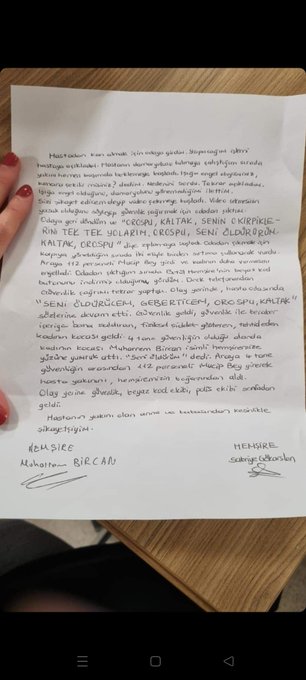 Hastadan kan almak için odaya girdim. Yapacağım işlemi
hastaya açıkladım. Hastanın damaryolunu bulmaya çalıştığım sırada
yakını hemen başımda beklemeye başladı. Işığa engel oluyorsunuz,
kenara çekilir misiniz? dedim. Nedenini sordu. Tekrar açıkladım.
Işığa engel olduğunu, damaryolunu göremediğimi ilettim.
Sizi şikayet edicem deyip video çekmeye başladı. Video çekmesinin
yasak olduğunu söyleyip güvenlik çağırmak için odadan çıktım.
Odaya geri döndüm ve "OROSPU, KALTAK, SENİN O KİRPİKLE-
RİNİ TEK TEK YOLARIM, OROSPU, SENİ ÖLDÜRÜRÜM
KALTAK, OROSPU" diye zıplamaya başladı. Odadan çıkmak için
kapıya yöneldiğim sırada iki eliyle birden sırtıma yumruk vurdu.
Araya 112 personeli Mucip Bey girdi ve kadının daha vurmasını
engelledi. Odadan çıktığım sırada Hemşire'nin beyaz kod
butonunu indirmiş olduğunu, gördüm. Direk telefonundan
Güvenlik çağrımı tekrar yaptım. Olay yerinde, hasta odasında
"SENİ ÖLDÜRÜCEM, GEBERTİCEM, OROSPU, KALTAK"
sözlerine devam etti. Güvenlik geldi, güvenlik ile beraber
içeriye bana saldıran, fiziksel şiddet gösteren, tehdit eden
kadının kocası geldi. 4 tane güvenliğin olduğu alanda
kadının kocası Muharrem Bircan isimli hemşiremizin
yüzüne yumruk attı. "Seni öldürürüm" dedi. Araya 4 tane
güvenliğin arasından 112 personeli Mucip Bey girerek
hasta yakınını, hemşiremizin boğazından aldı.
Olay yerine güvenlik, beyaz kod ekibi, polis ekibi sonradan
geldi.
Hastanın yakını olan anne ve babasından kesinlikle
şikayetçiyim.
HEMŞİRE
Muharrem BİRCAN
HEMŞİRE
Sabriye Gökarslan